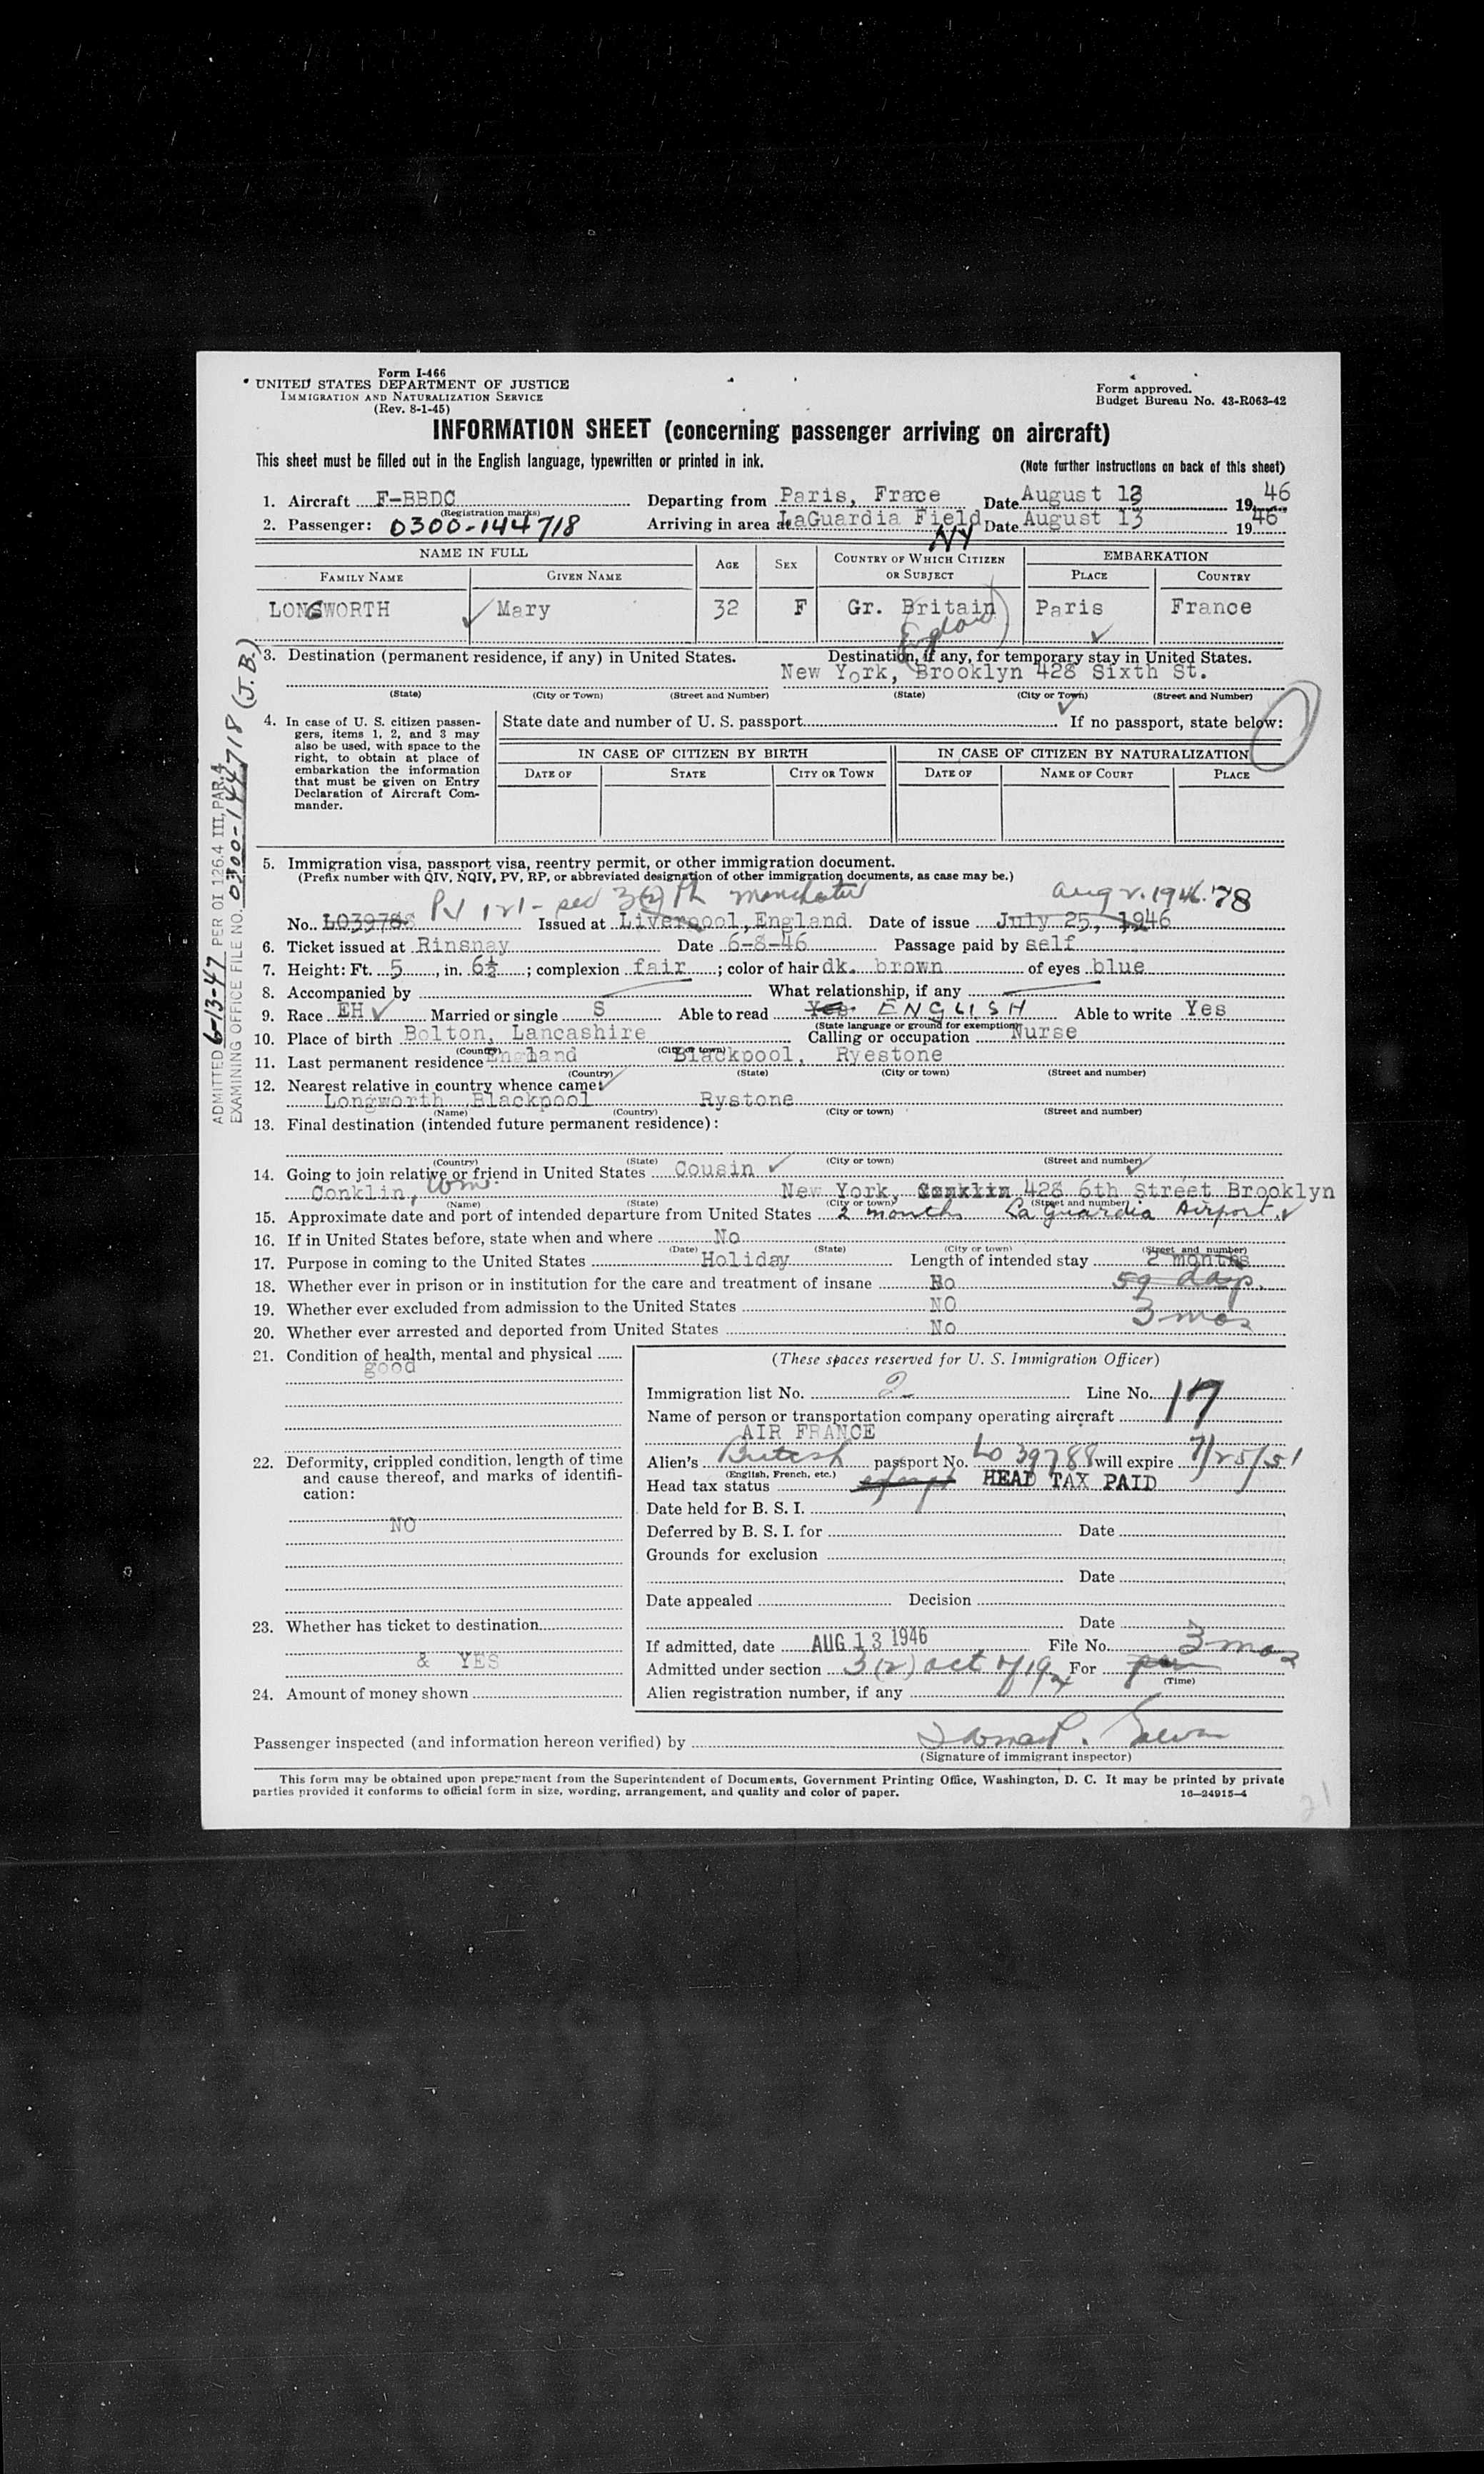 Form I-466
UNITED STATES DEPARTMENT OF JUSTICE
IMMIGRATION AND NATURALIZATION SERVICE
(Rev. 8-1-45)
Form approved.
Budget Bureau No. 43-R063-42
INFORMATION SHEET (concerning passenger arriving on aircraft)
This sheet must be filled out in the English language, typewritten or printed in ink.
(Note further instructions on back of this sheet)
1. Aircraft F-BBDC Departing from Paris, Frace Date August 13 1946
(Registration marks)
2. Passenger: 0300-144718 Arriving in area at LaGuardia Field Date August 13 1946
NY
NAME IN FULL AGE SEX COUNTRY OF WHICH CITIZEN OR SUBJECT EMBARKATION
FAMILY NAME GIVEN NAME PLACE COUNTRY
LONGWORTH Mary 32 F Gr. Britain Paris France
(England)
3. Destination (permanent residence, if any) in United States. Destination, if any, for temporary stay in United States.
New York, Brooklyn 428 Sixth St.
(State) (City or Town) (Street and Number) (State) (City or Town) (Street and Number)
4. In case of U. S. citizen passengers, items 1, 2, and 3 may also be used, with space to the right, to obtain at place of embarkation the information that must be given on Entry Declaration of Aircraft Commander.
State date and number of U. S. passport If no passport, state below:
IN CASE OF CITIZEN BY BIRTH IN CASE OF CITIZEN BY NATURALIZATION
DATE OF STATE CITY OR TOWN DATE OF NAME OF COURT PLACE
ADMITTED 6-13-47 PER OI 126.4 III, PAR. 4
EXAMINING OFFICE FILE NO. 0300-144718 (J.B.)
5. Immigration visa, passport visa, reentry permit, or other immigration document.
(Prefix number with QIV, NQIV, PV, RP, or abbreviated designation of other immigration documents, as case may be.)
PV 121 - sec 3(2) Manchester Aug 2. 1946. 78
No. LO39788 Issued at Liverpool, England Date of issue July 25, 1946
6. Ticket issued at Rinsnay Date 6-8-46 Passage paid by self
7. Height: Ft. 5, in. 6½; complexion fair; color of hair dk. brown of eyes blue
8. Accompanied by What relationship, if any
9. Race EH Married or single S Able to read Yes. ENGLISH Able to write Yes
(State language or ground for exemption)
10. Place of birth Bolton, Lancashire Calling or occupation Nurse
(Country) (City or town)
11. Last permanent residence England Blackpool, Ryestone
(Country) (State) (City or town) (Street and number)
12. Nearest relative in country whence came:
Longworth Blackpool Rystone
(Name) (Country) (City or town) (Street and number)
13. Final destination (intended future permanent residence):
(Country) (State) (City or town) (Street and number)
14. Going to join relative or friend in United States Cousin
Conklin, Wm. New York, Conklin 428 6th Street Brooklyn
(Name) (State) (City or town) (Street and number)
15. Approximate date and port of intended departure from United States 2 months La Guardia Airport.
16. If in United States before, state when and where No
(Date) (State) (City or town) (Street and number)
17. Purpose in coming to the United States Holiday Length of intended stay 2 months
18. Whether ever in prison or in institution for the care and treatment of insane No 59 days.
19. Whether ever excluded from admission to the United States NO 3 mos
20. Whether ever arrested and deported from United States No
21. Condition of health, mental and physical
good
22. Deformity, crippled condition, length of time and cause thereof, and marks of identification:
NO
23. Whether has ticket to destination
& YES
24. Amount of money shown
(These spaces reserved for U. S. Immigration Officer)
Immigration list No. 2 Line No. 17
Name of person or transportation company operating aircraft
AIR FRANCE
Alien's British passport No. Lo 39788 will expire 7/25/51
(English, French, etc.)
Head tax status exempt HEAD TAX PAID
Date held for B. S. I.
Deferred by B. S. I. for Date
Grounds for exclusion
Date
Date appealed Decision
Date
If admitted, date AUG 13 1946 File No. 3 mos
Admitted under section 3(2) act of 1924 For
(Time)
Alien registration number, if any
Passenger inspected (and information hereon verified) by
(Signature of immigrant inspector)
This form may be obtained upon prepayment from the Superintendent of Documents, Government Printing Office, Washington, D. C. It may be printed by private
parties provided it conforms to official form in size, wording, arrangement, and quality and color of paper. 16—24915-4
21